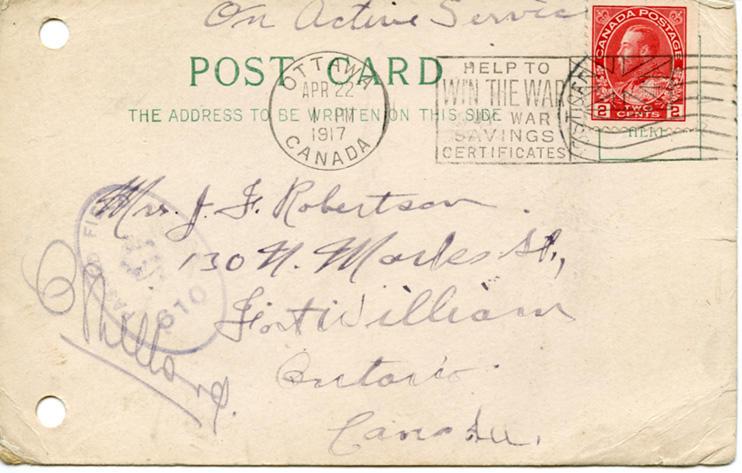 On Active Service
POST CARD
THE ADDRESS TO BE WRITTEN ON THIS SIDE
OTTAWA
APR 22
PM
1917
CANADA
HELP TO
WIN THE WAR
BUY WAR
SAVINGS
CERTIFICATES
CANADA POSTAGE
2 TWO CENTS 2
HERE
Mrs. J. F. Robertson.
130 N. Marks St.,
Fort William
Ontario.
Canada.
PASSED FIELD
610